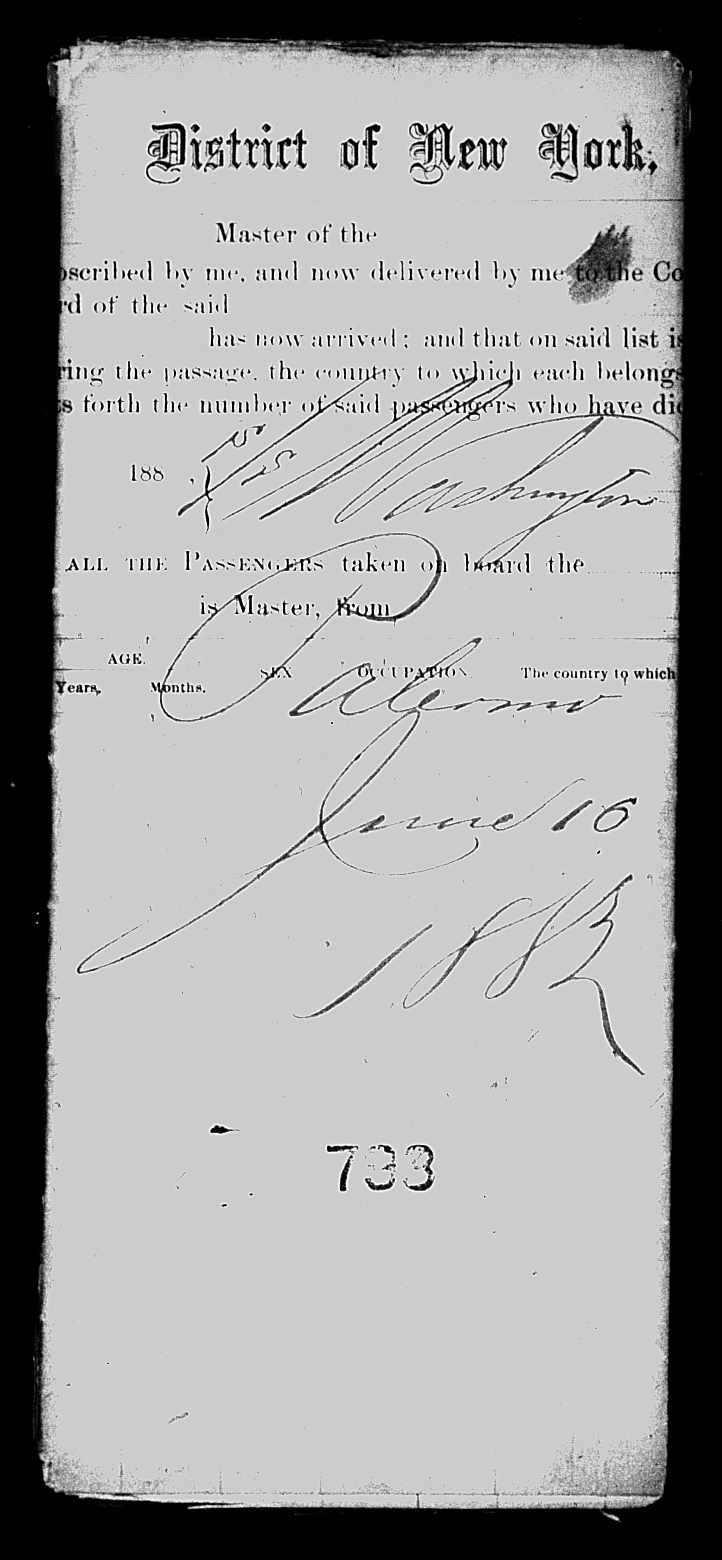 District of New York,
Master of the
bscribed by me, and now delivered by me to the Co
rd of the said
has now arrived; and that on said list is
ring the passage, the country to which each belongs
s forth the number of said passengers who have die
188 ,
SS Washington
ALL THE PASSENGERS taken on board the
is Master, from
AGE.
SEX OCCUPATION. The country to which
Years, Months.
Palermo
June 16
1882
733